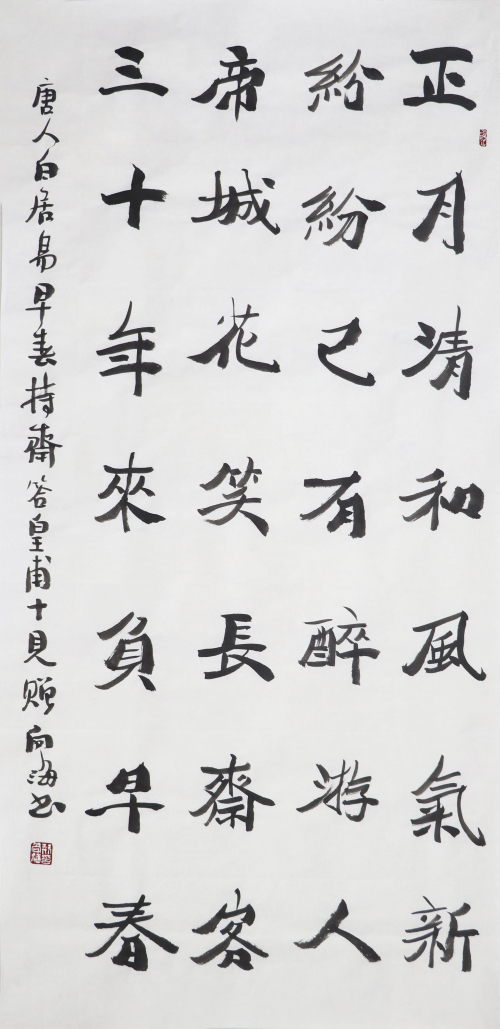 正月清和風氣新
紛紛已有醉游人
帝城花笑長齋客
三十年來負早春
唐人白居易早春持齋答皇甫十見贈 向海书